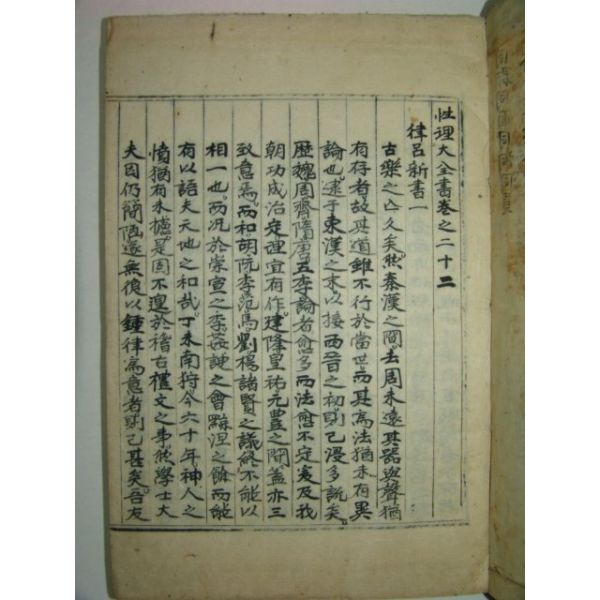 性理大全書卷之二十二
律呂新書一
古樂之亡久矣然秦漢之間去周未遠其器與聲猶
有存者故其道雖不行於當世而其爲法猶未有異
論也逮于東漢之末以接西晉之初則已浸多說矣
歷魏周齊隋唐五季論者愈多而法愈不定爰及我
朝功成治定理宜有作建隆皇祐元豊之間盖亦三
致意焉而和胡阮李范馬劉楊諸賢之議終不能以
相一也而况於崇宣之季姦諛之會黥涅之餘而能
有以語夫天地之和哉丁未南狩今六十年神人之
憤猶有未攄是固不遑於稽古禮文之事然學士大
夫因仍簡陋遂無復以鍾律爲意者則已甚矣吾友